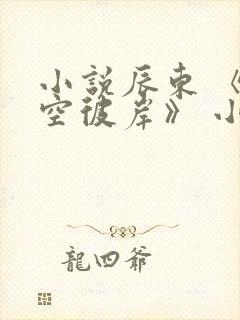 小説辰東《
空彼岸》小
龍四爺